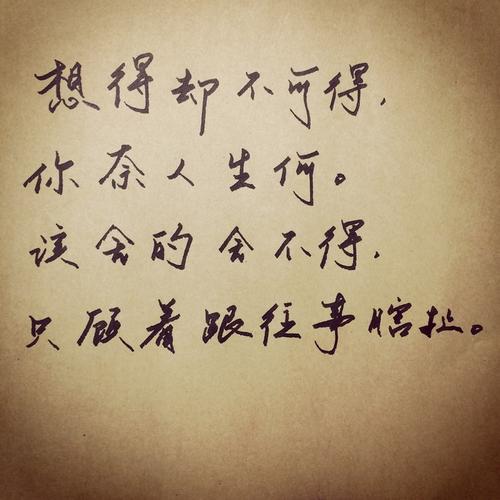 想得却不可得,
你奈人生何。
该舍的舍不得,
只顾着跟往事瞎扯。